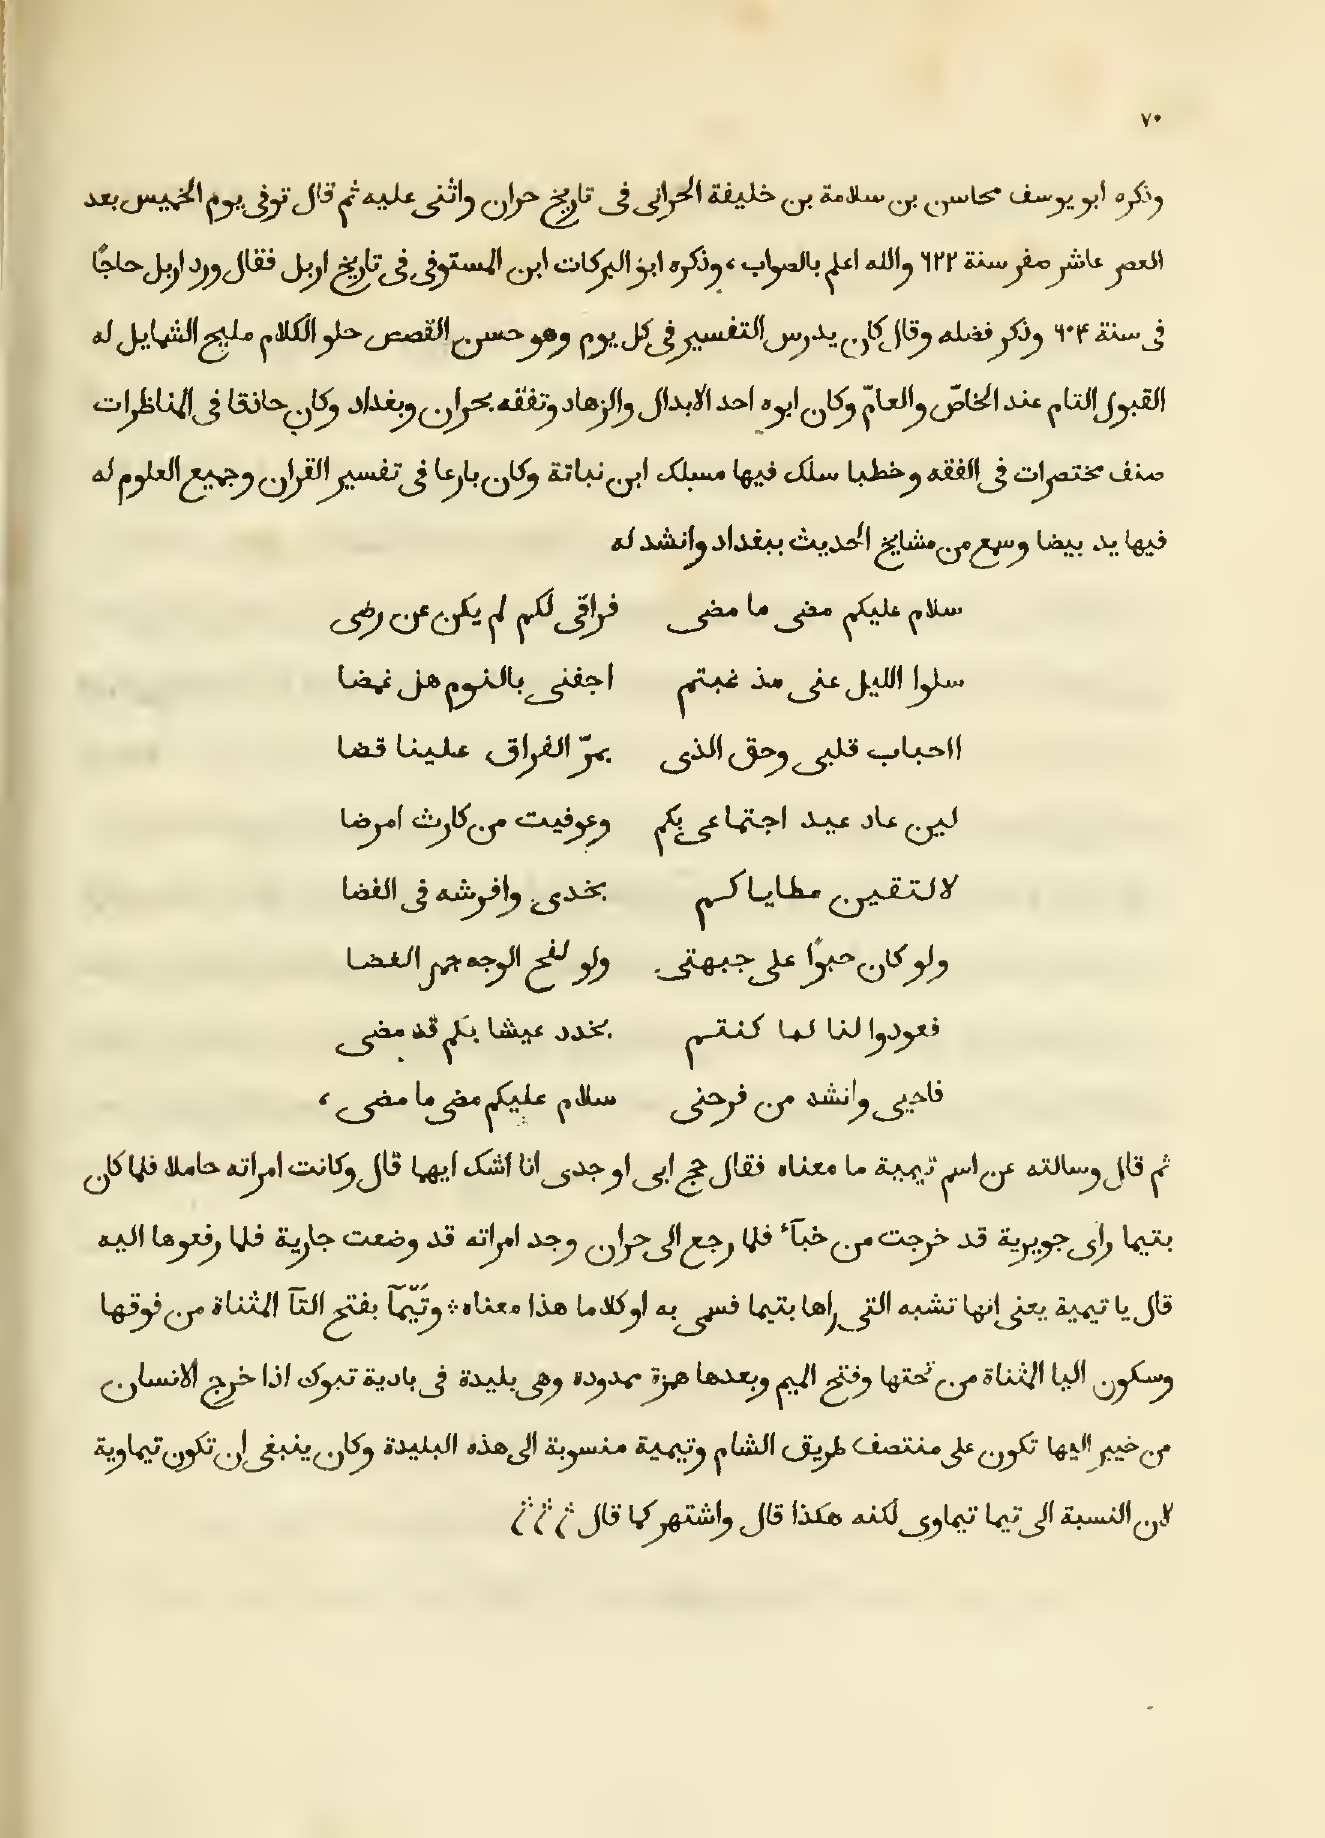 ٧٠
وذكره ابو يوسف محاسن بن سلامة بن خليفة الحرانى فى تاريخ حران واثنى عليه ثم قال توفى يوم الخميس بعد
العصر عاشر صفر سنة ٦٢٢ والله اعلم بالصواب، وذكره ابو البركات ابن المستوفى فى تاريخ اربل فقال ورد اربل حاجًا
فى سنة ٦٠٤ وذكر فضله وقال كان يدرس التفسير فى كل يوم وهو حسن القصص حلو الكلام مليح الشمايل له
القبول التام عند الخاصّ والعامّ وكان ابوه احد الابدال والزهاد وتفقه بحران وبغداد وكان حاذقا فى المناظرات
صنف مختصرات فى الفقه وخطبا سلك فيها مسلك ابن نباتة وكان بارعا فى تفسير القران وجميع العلوم له
فيها يد بيضا وسمع من مشايخ الحديث ببغداد وانشد له
سلام عليكم مضى ما مضى فراقى لكم لم يكن عن رضى
سلوا الليل عنى مذ غبتم اجفنى بالنوم هل غمضا
ااحباب قلبى وحق الذى بمرّ الفراق علينا قضا
لين عاد عيد اجتماعى بكم وعوفيت من كارث امرضا
لالتقين مطاياكم بخدى وافرشه فى الفضا
ولو كان حبوًا على جبهتى ولو لفح الوجه جمر الغضا
فعودوا لنا لما كنتم بخدد عيشا بكم قد مضى
فاحيى وانشد من فرحتى سلام عليكم مضى ما مضى،
ثم قال وسالته عن اسم تيمية ما معناه فقال حج ابى او جدى انا اشك ايهما قال وكانت امراته حاملا فلما كان
بتيما راى جويرية قد خرجت من خبآء فلما رجع الى حران وجد امراته قد وضعت جارية فلما رفعوها اليه
قال يا تيمية يعنى انها تشبه التى راها بتيما فسمى به او كلاما هذا معناه وتَيْمآ بفتح التآ المثناة من فوقها
وسكون اليا المثناة من تحتها وفتح الميم وبعدها همزة ممدوده وهى بليدة فى بادية تبوك اذا خرج الانسان
من خيبر اليها تكون على منتصف طريق الشام وتيمية منسوبة الى هذه البليدة وكان ينبغى ان تكون تيماوية
لان النسبة الى تيما تيماوى لكنه هكذا قال واشتهر كما قال